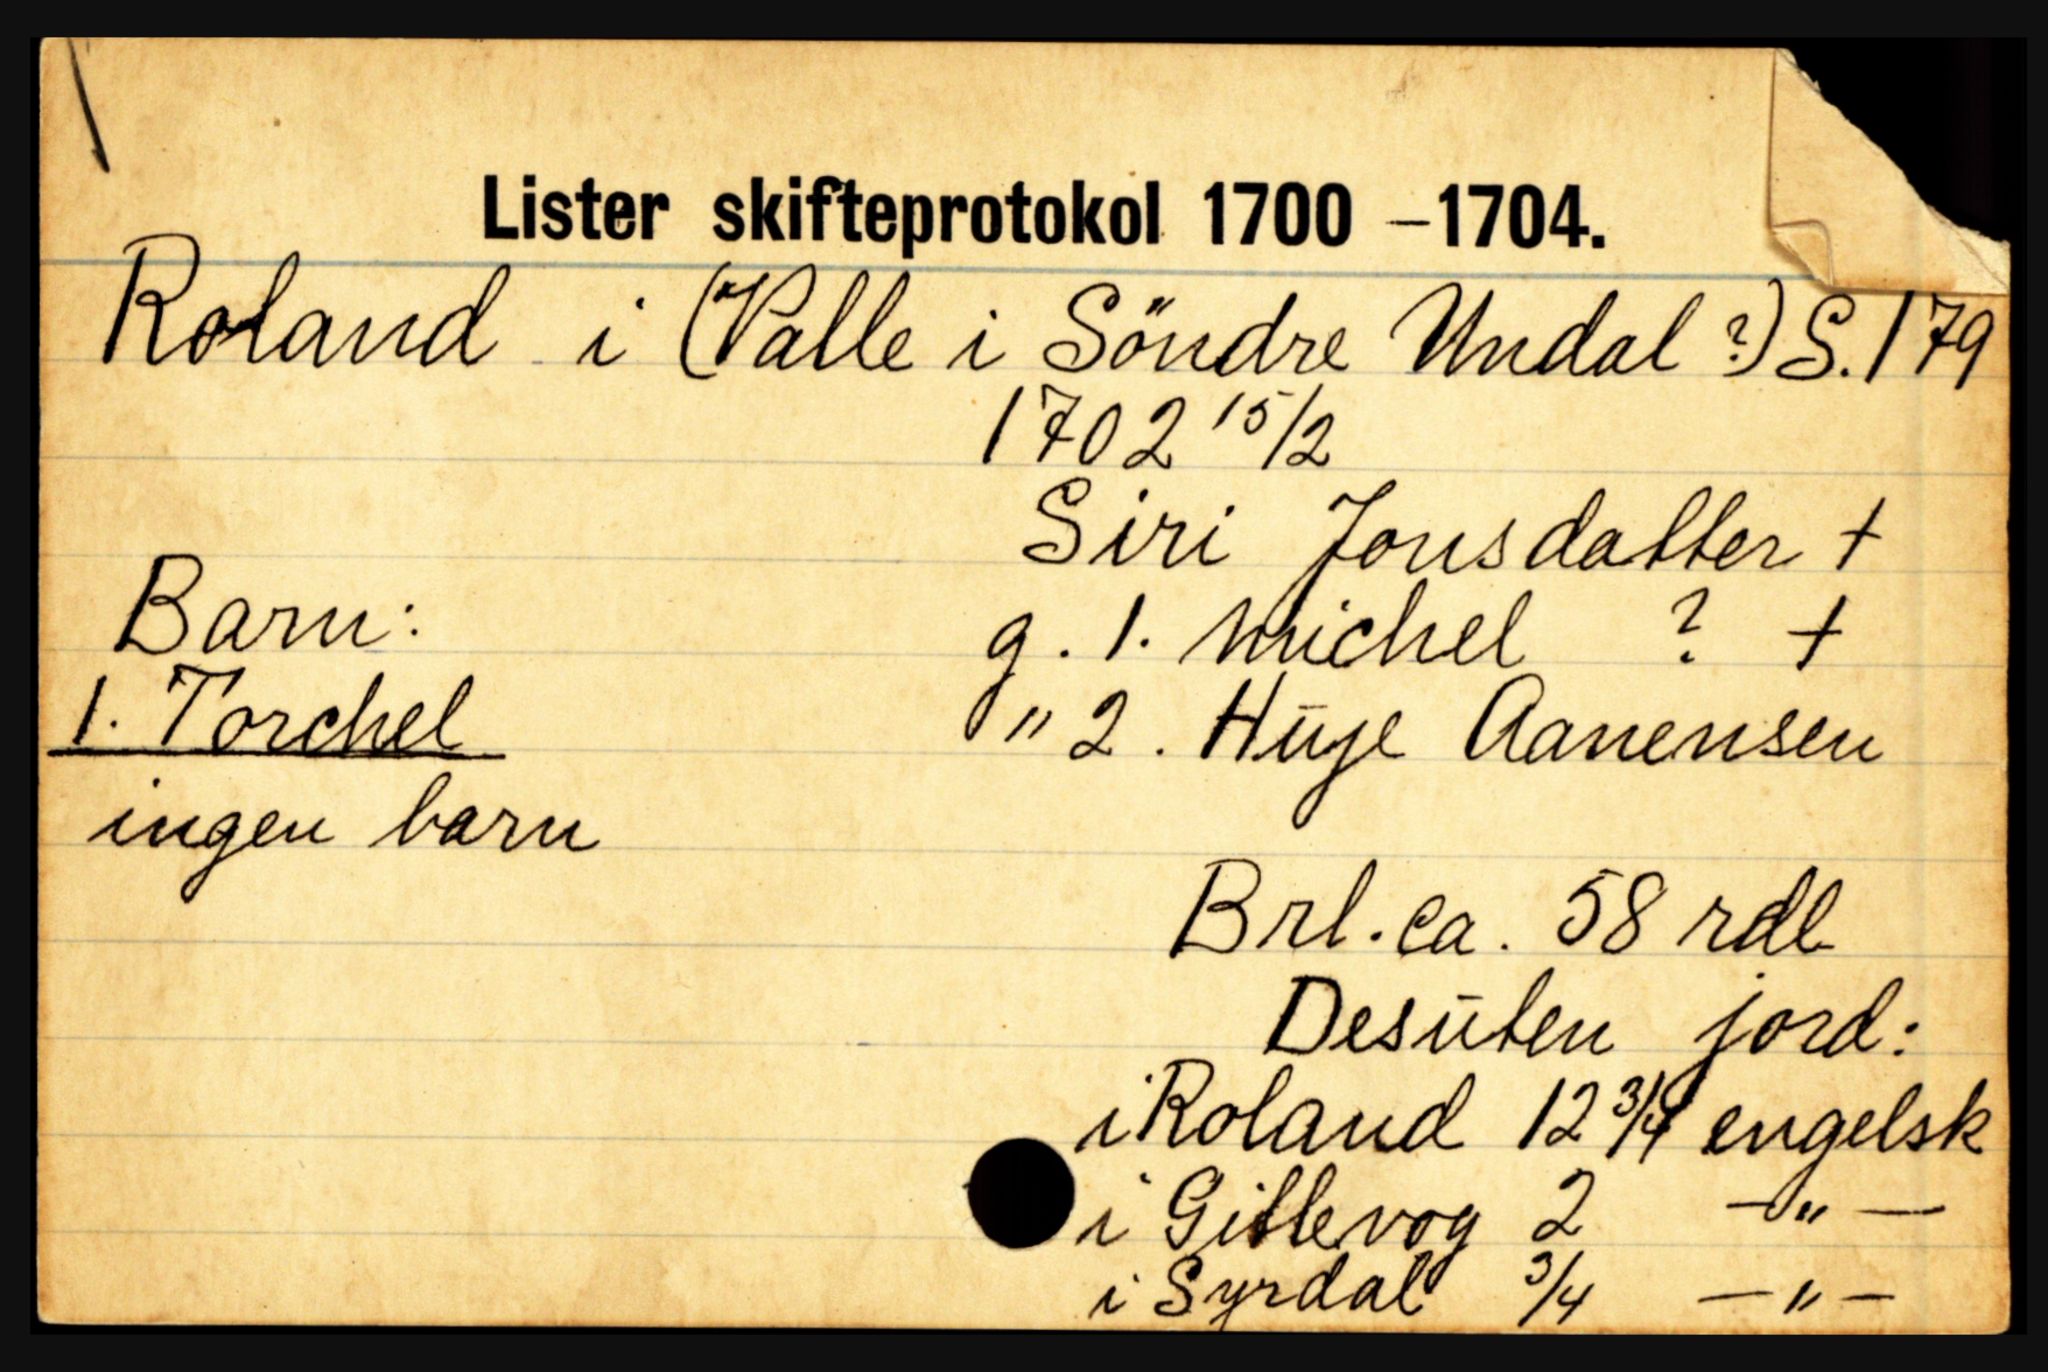 Lister skifteprotokol 1700 – 1704.
Roland i (Valle i Söndre Undal ?) S. 179
1702 15/2
Siri Jonsdatter +
Barn:
g. 1. Michel ? +
1. Torchel
" 2. Hūye Aanensen
ingen barn
Brl. ca. 58 rdl
Desūten jord:
i Roland 12 3/4 engelsk
i Gittlevog 2 — " —
i Syrdal 3/4 — " —